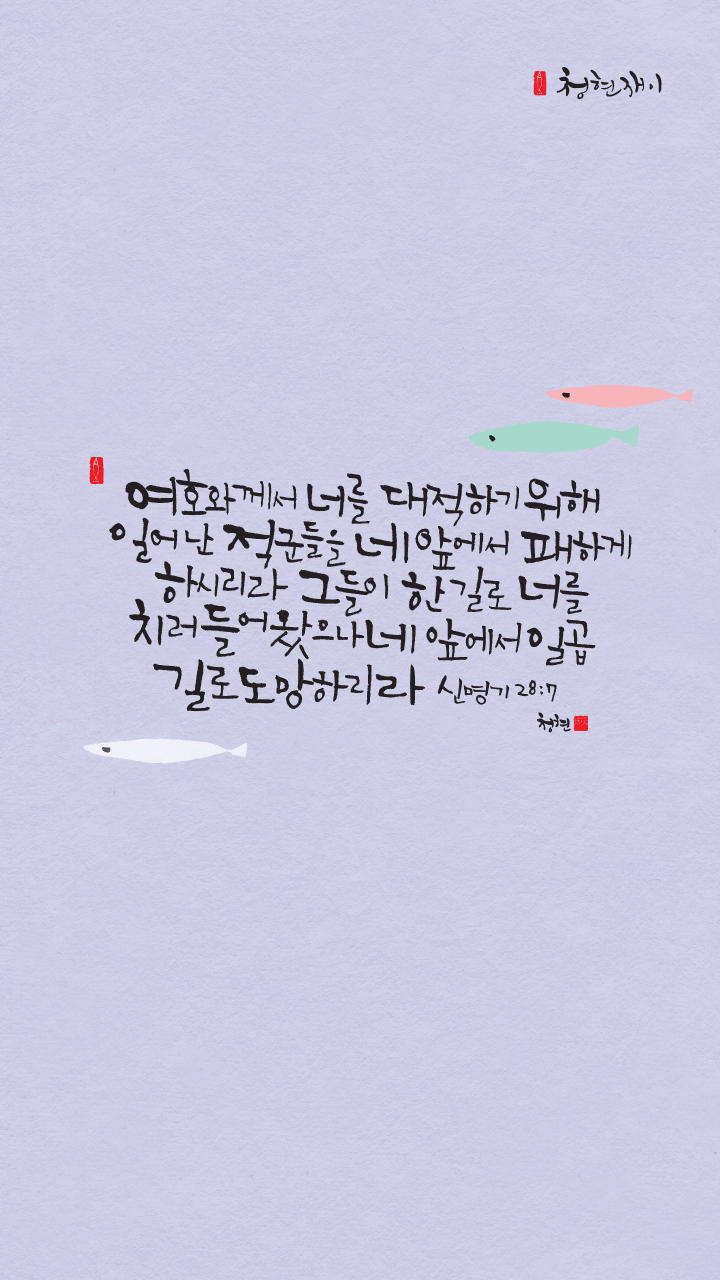 청현재이
여호와께서 너를 대적하기 위해
일어난 적군들을 네 앞에서 패하게
하시리라 그들이 한 길로 너를
치러 들어왔으나 네 앞에서 일곱
길로 도망하리라 신명기 28:7
청현